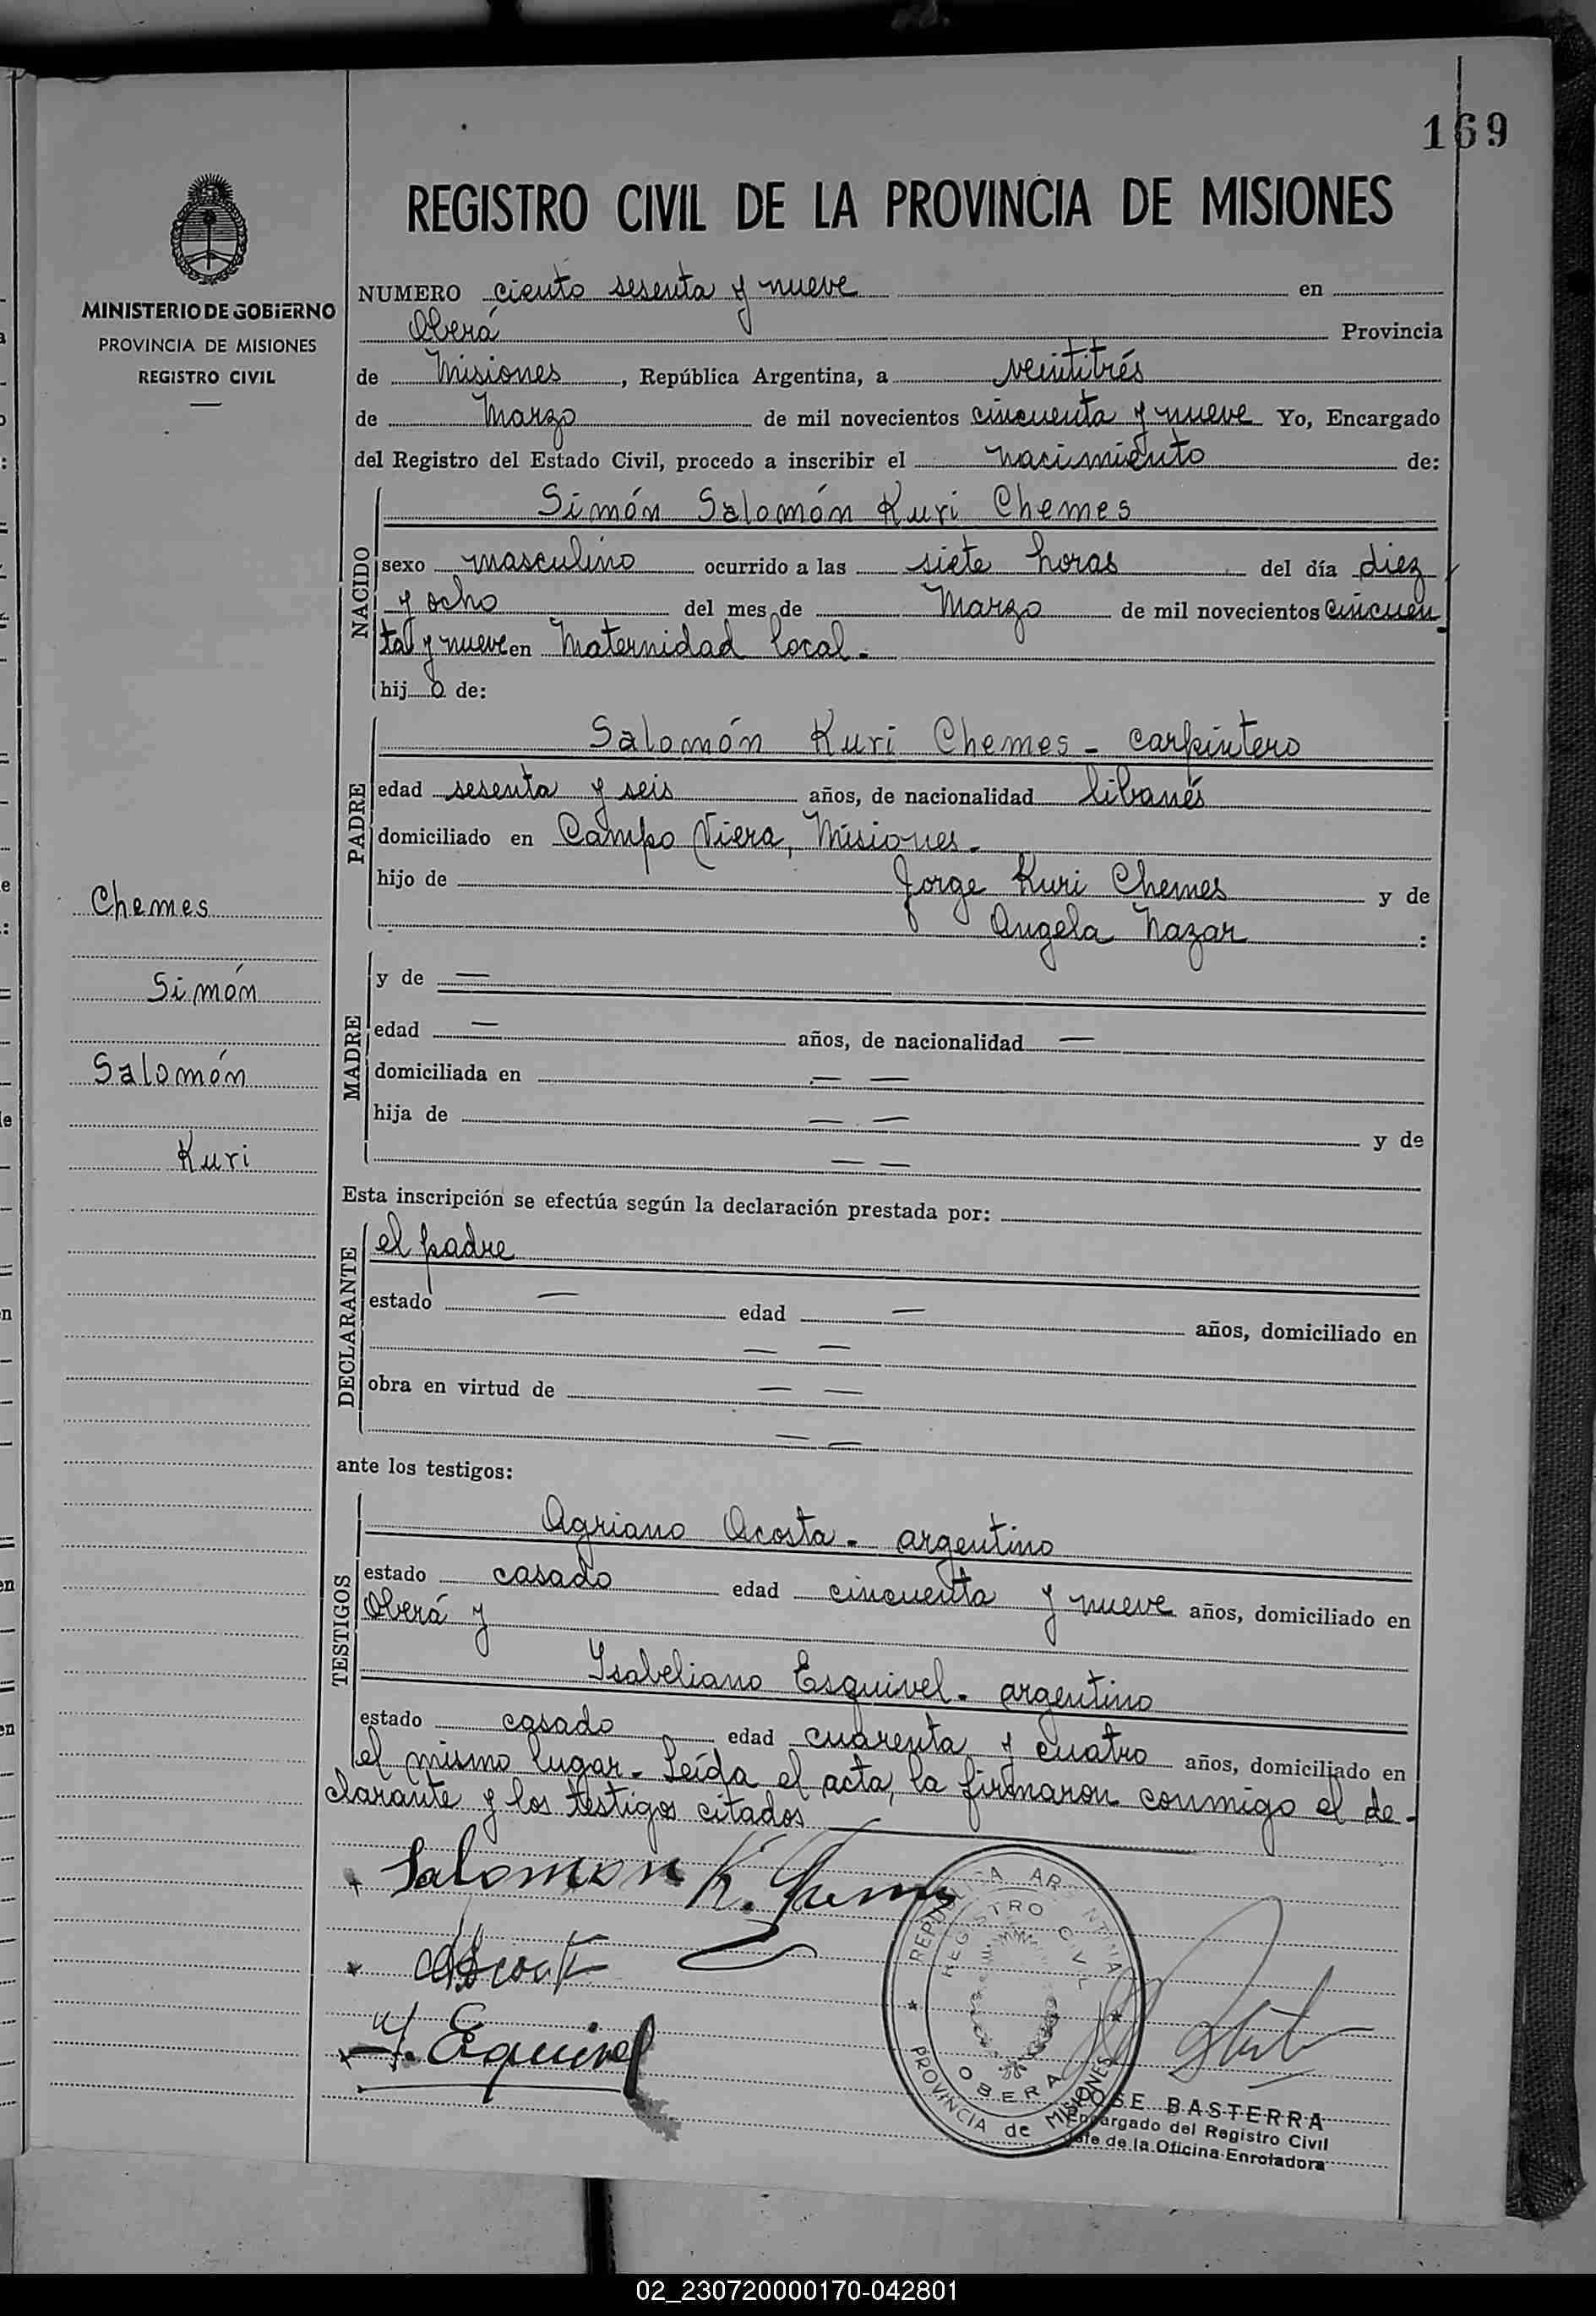 169
REGISTRO CIVIL DE LA PROVINCIA DE MISIONES
MINISTERIO DE GOBIERNO
PROVINCIA DE MISIONES
REGISTRO CIVIL
NUMERO ciento sesenta y nueve en
Oberá Provincia
de Misiones, República Argentina, a veintitrés
de Marzo de mil novecientos cincuenta y nueve Yo, Encargado
del Registro del Estado Civil, procedo a inscribir el nacimiento de:
NACIDO
Simón Salomón Kuri Chemes
sexo masculino ocurrido a las siete horas del día diez
y ocho del mes de Marzo de mil novecientos cincuen
ta y nueve en Maternidad local.
hij o de:
PADRE
Salomón Kuri Chemes - carpintero
edad sesenta y seis años, de nacionalidad libanés
domiciliado en Campo Viera, Misiones.
hijo de Jorge Kuri Chemes y de
Angela Nazar :
Chemes
Simón
Salomón
Kuri
MADRE
y de —
edad — años, de nacionalidad —
domiciliada en — —
hija de — — y de
— —
Esta inscripción se efectúa según la declaración prestada por:
DECLARANTE
el padre
estado — edad — años, domiciliado en
— —
obra en virtud de — —
— —
ante los testigos:
TESTIGOS
Agriano Acosta - argentino
estado casado edad cincuenta y nueve años, domiciliado en
Oberá y
Ysabeliano Esquivel - argentino
estado casado edad cuarenta y cuatro años, domiciliado en
el mismo lugar. Leída el acta, la firmaron conmigo el de-
clarante y los testigos citados
Salomon K.
Y. Equivel
REPUBLICA ARGENTINA
REGISTRO CIVIL
OBERA
PROVINCIA de MISIONES
JOSE BASTERRA
Encargado del Registro Civil
Jefe de la Oficina Enroladora
02_230720000170-042801